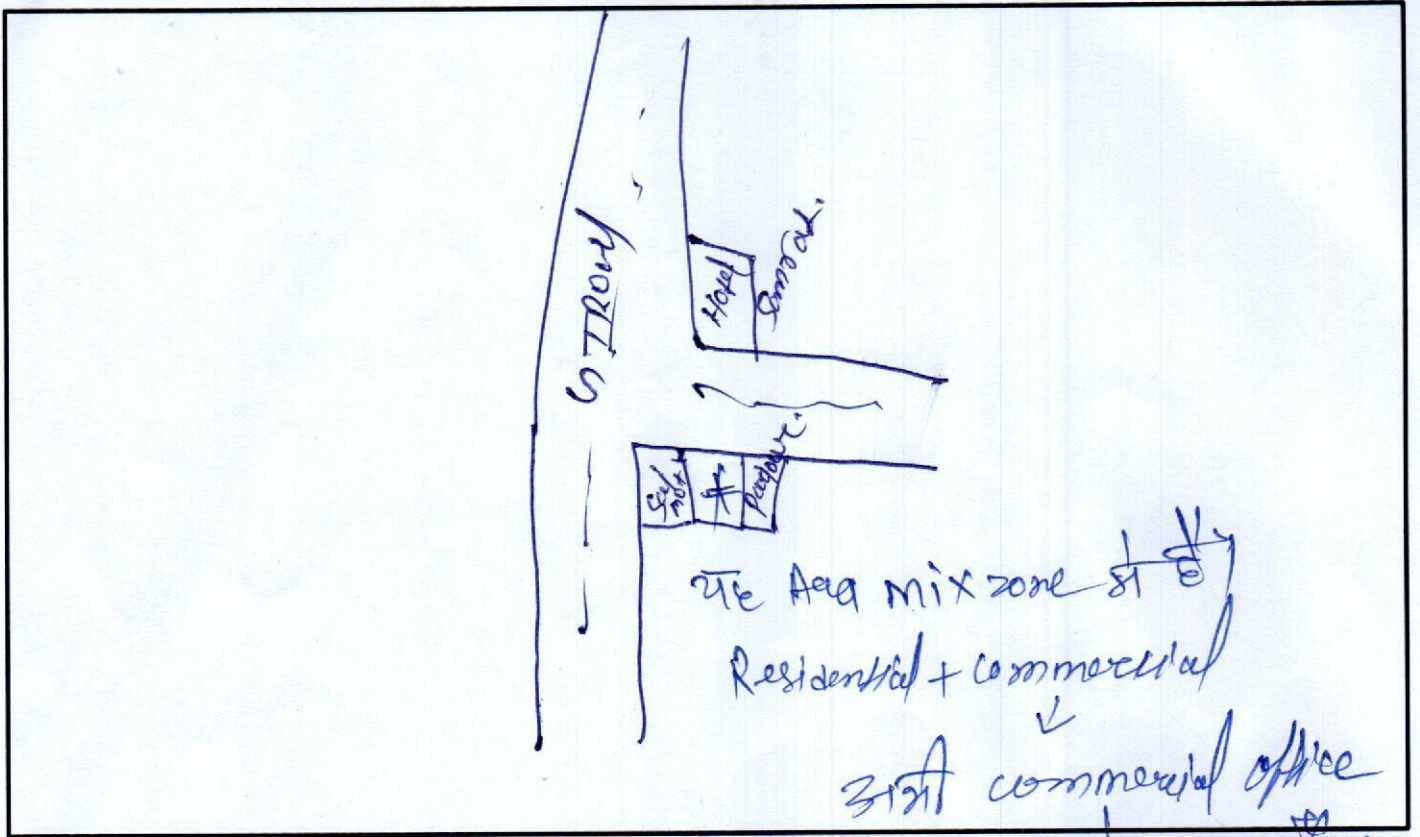 SIROHI
Hotel
Samrat.
Parlour.
यह Area mix zone में है
Residential + Commercial
अभी commercial office